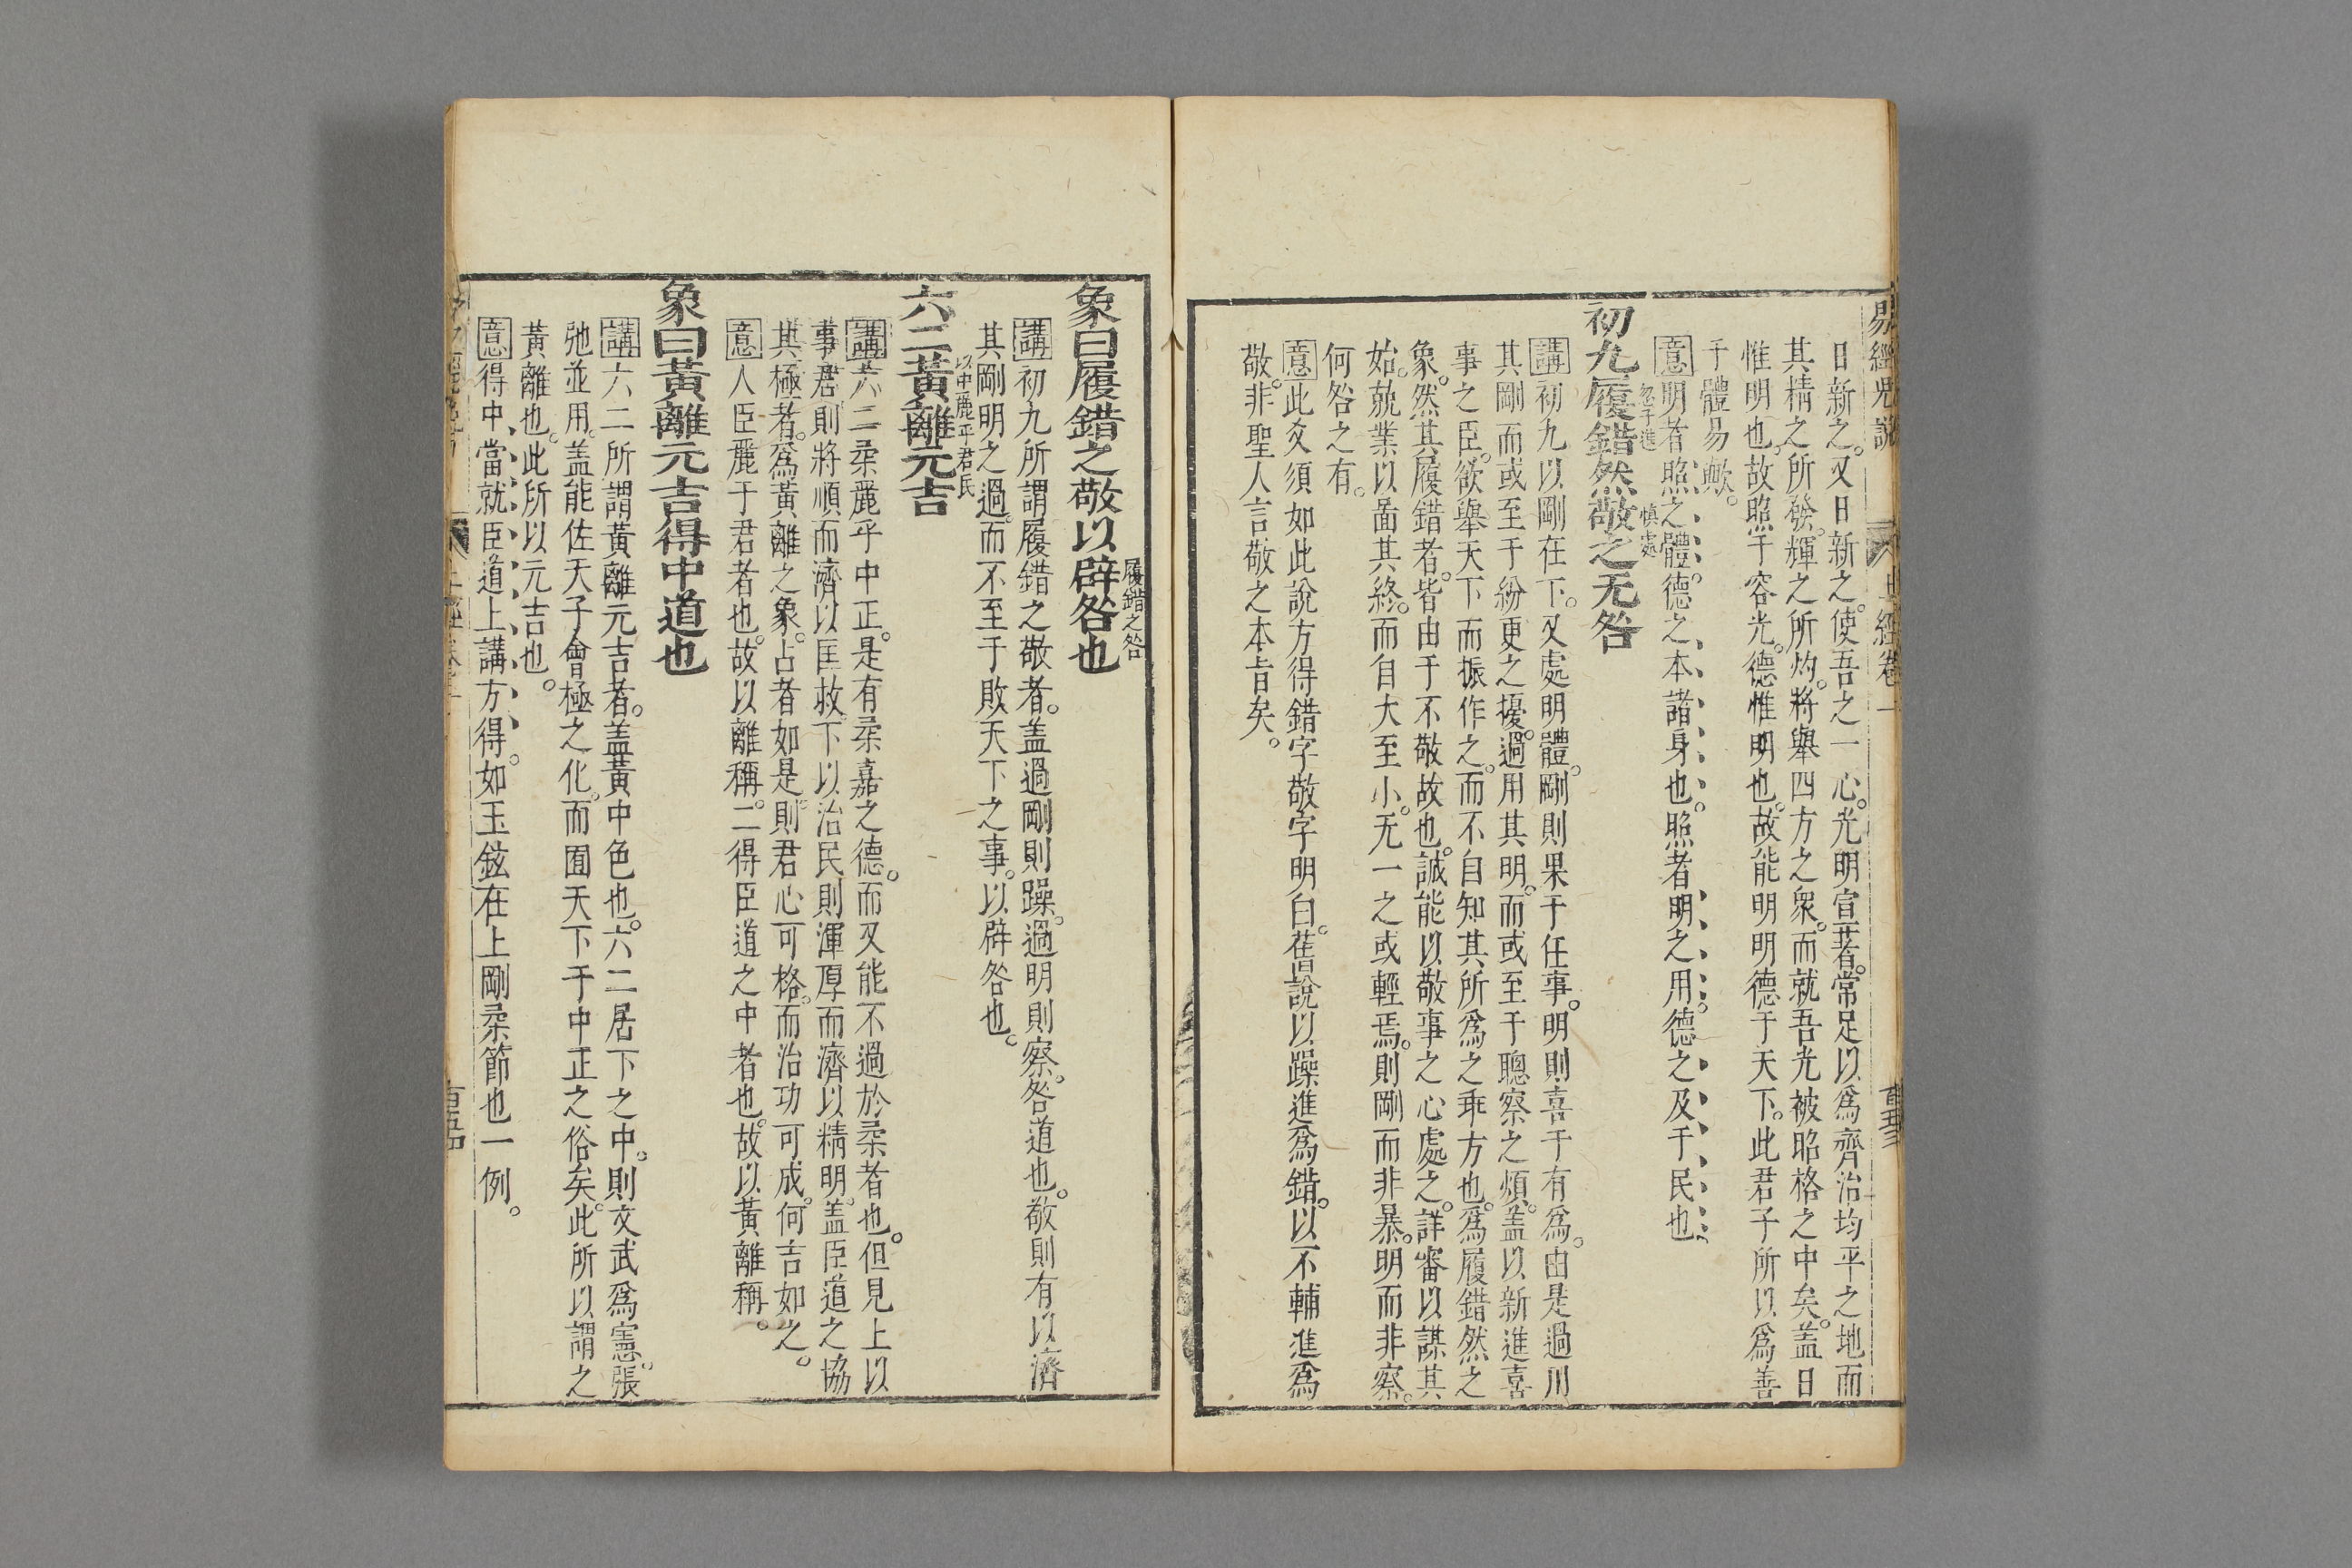 易經兒說
上經卷一
日新之。又日新之。使吾之一心。光明宣著。常足以爲齊治均平之地而
其精之所發。輝之所灼。將舉四方之衆。而就吾光被昭格之中矣。盖日
惟明也。故照于容光。德惟明也。故能明明德于天下。此君子所以爲善
于體易歟。
意明者照之體。德之本諸身也。照者明之用。德之及于民也
忽于進 慎處
初九履錯然敬之无咎
講初九以剛在下。又處明體。剛則果于任事。明則喜于有爲。由是過用
其剛而或至于紛更之擾。過用其明。而或至于聰察之煩。盖以新進喜
事之臣。欲舉天下而振作之。而不自知其所爲之乖方也。爲履錯然之
象。然其履錯者。皆由于不敬故也。誠能以敬事之心處之。詳審以謀其
始。兢業以啚其終。而自大至小。无一之或輕焉。則剛而非暴。明而非察。
何咎之有。
意此爻須如此說方得錯字敬字明白。舊說以躁進爲錯。以不輔進爲
敬。非聖人言敬之本旨矣。
履錯之咎
象曰履錯之敬以辟咎也
講初九所謂履錯之敬者。盖過剛則躁。過明則察。咎道也。敬則有以濟
其剛明之過。而不至于敗天下之事。以辟咎也。
以中麗乎君民
六二黃離元吉
講六二柔麗乎中正。是有柔嘉之德。而又能不過於柔者也。但見上以
事君則將順而濟以匡救。下以治民則渾厚而濟以精明。盖臣道之協
其極者。爲黃離之象。占者如是。則君心可格。而治功可成。何吉如之。
意人臣麗于君者也。故以離稱。二得臣道之中者也。故以黃離稱。
象曰黃離元吉得中道也
講六二所謂黃離元吉者。盖黃中色也。六二居下之中。則文武爲憲。張
弛並用。盖能佐天子會極之化。而囿天下于中正之俗矣。此所以謂之
黃離也。此所以元吉也。
意得中當就臣道上講方得。如玉鉉在上剛柔節也一例。